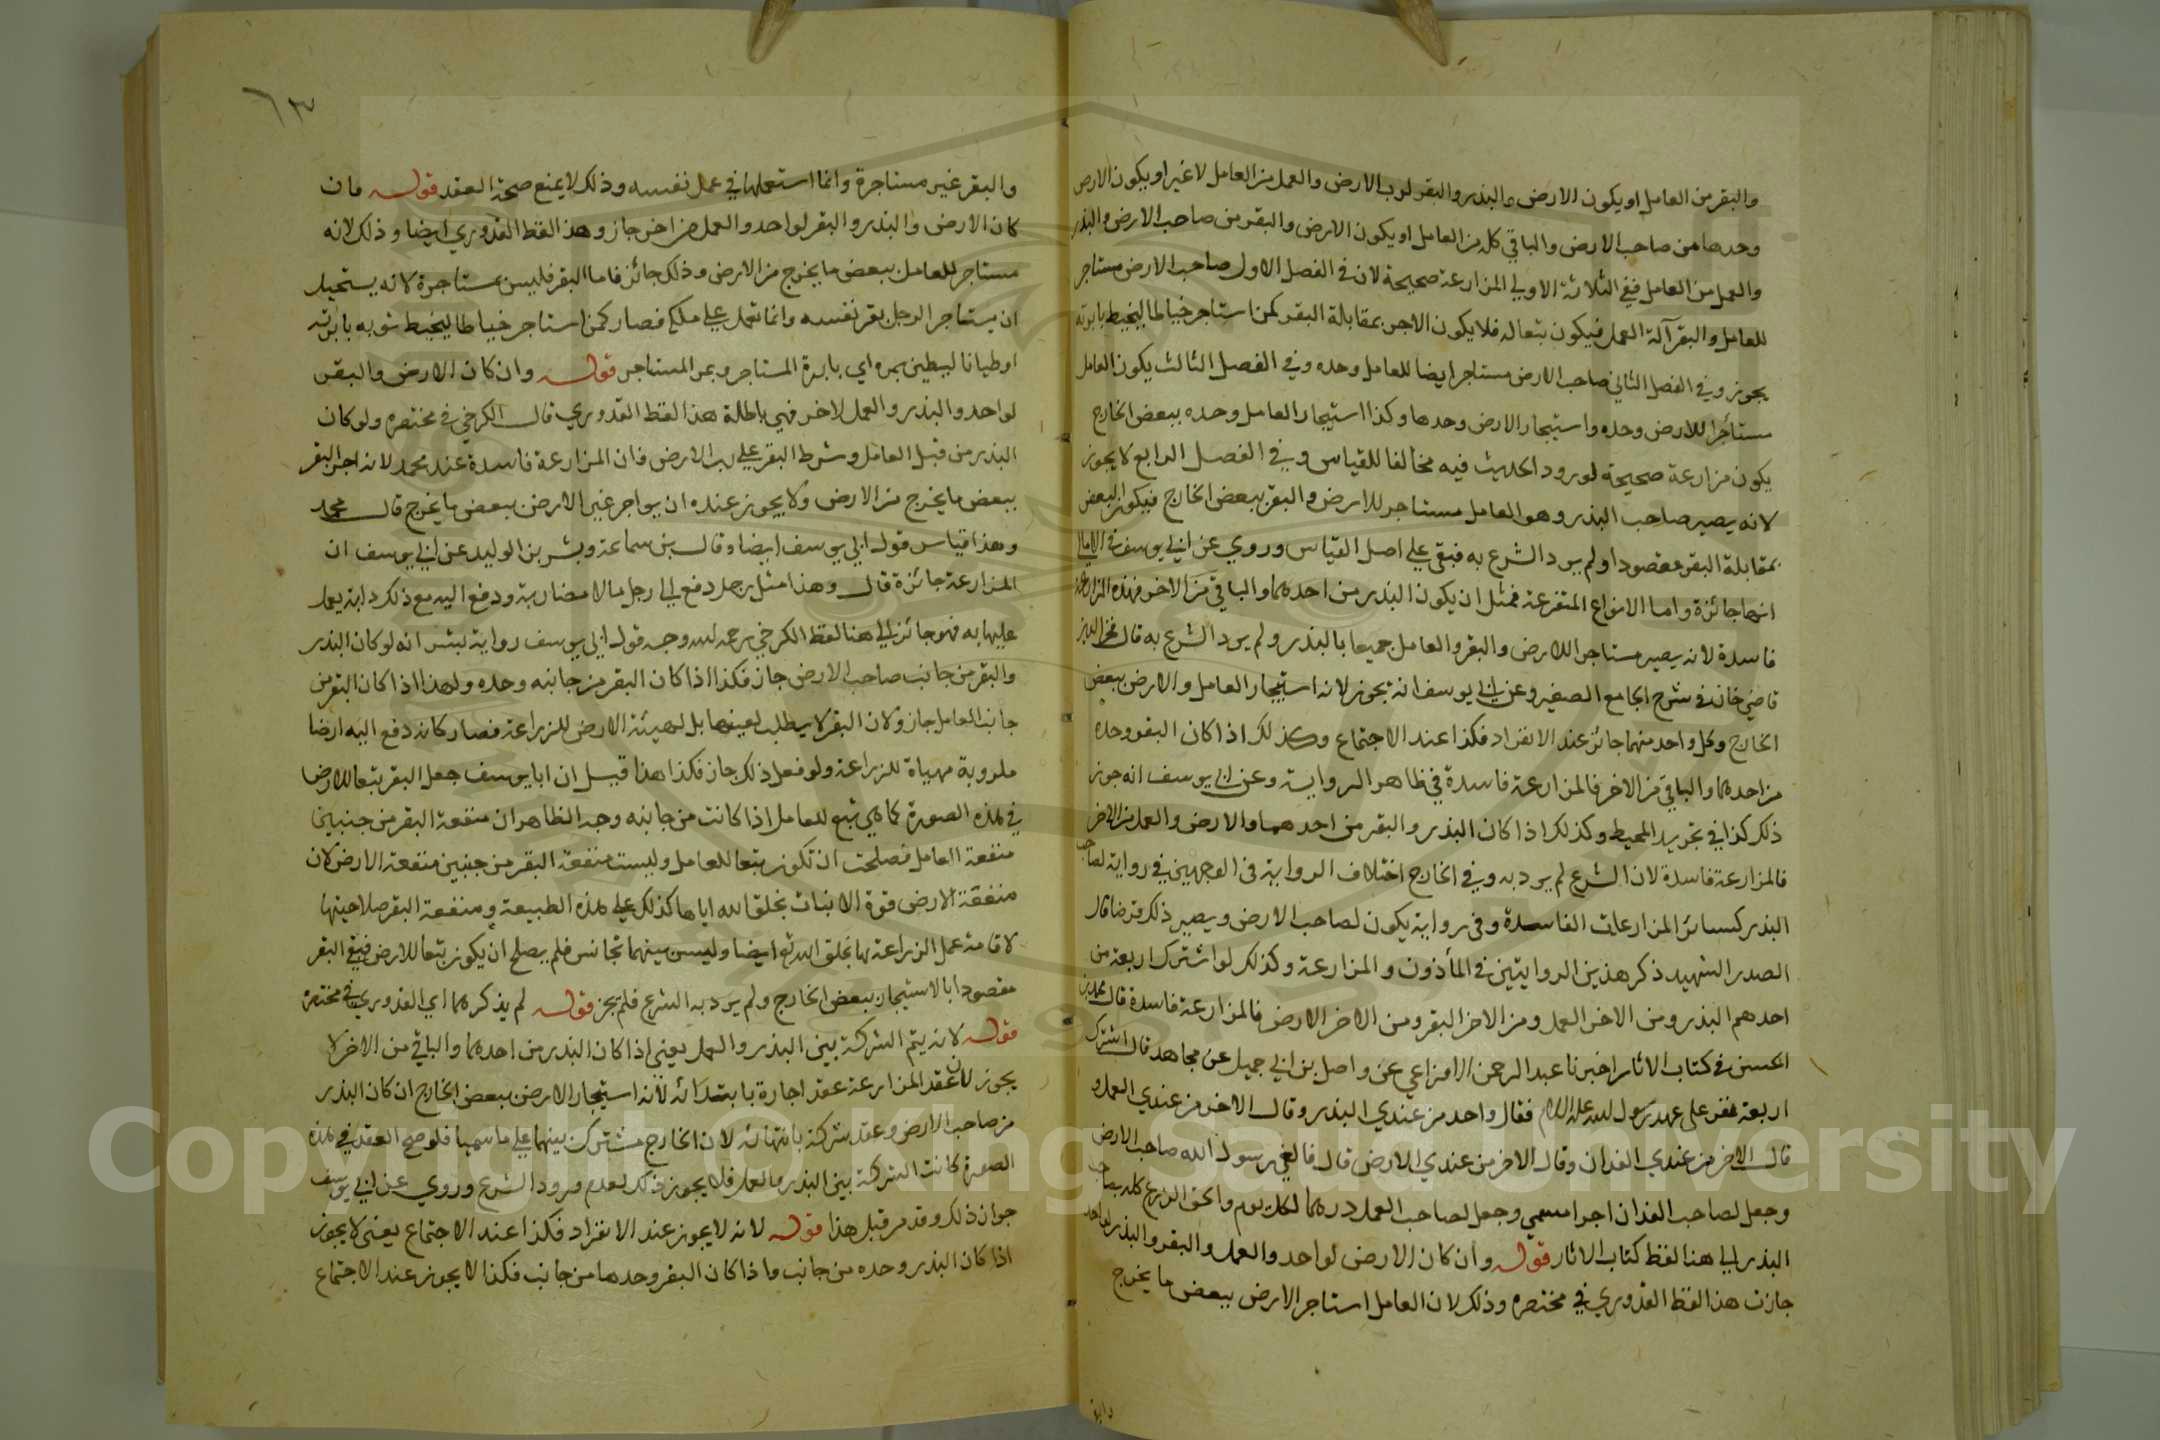 والبقر من العامل او يكون الارض والبذر والبقر لرب الارض والعمل من العامل لا غير او يكون الارض
وحدها من صاحب الارض والباقي كله من العامل او يكون الارض والبقر من صاحب الارض والبذر
والعمل من العامل ففي الثلاثة الاولى المزارعة صحيحة لان في الفصل الاول صاحب الارض مستاجر
للعامل والبقر آلة العمل فيكون تبعا له فلا يكون الاجر بمقابلة البقر كمن استاجر خياطا ليخيط بابرته
يجوز وفي الفصل الثاني صاحب الارض مستاجر ايضا للعامل وحده وفي الفصل الثالث يكون العامل
مستأجرا للارض وحده واستيجار الارض وحدها وكذا استيجار العامل وحده ببعض الخارج
يكون مزارعة صحيحة لورود الحديث فيه مخالفا للقياس وفي الفصل الرابع لا يجوز
لانه يصير صاحب البذر وهو العامل مستاجر للارض والبقر ببعض الخارج فيكون البعض
بمقابلة البقر مقصودا ولم يرد الشرع به فبقي على اصل القياس وروي عن ابي يوسف في الامالي
انها جائزة واما الانواع المتفرعة فمثل ان يكون البذر من احدهما والباقي من الاخر فهذه المزارعة
فاسدة لانه يصير مستاجر اللارض والبقر والعامل جميعا بالبذر ولم يرد الشرع به قال فخر الدين
قاضي خان في شرح الجامع الصغير وعن ابي يوسف انه يجوز لانه استيجار العامل والارض ببعض
الخارج وكل واحد منهما جائز عند الانفراد فكذا عند الاجتماع وكذلك اذا كان البقر وحده
من احدهما والباقي من الاخر فالمزارعة فاسدة في ظاهر الرواية وعن ابي يوسف انه جوز
ذلك كذا في تجريد المحيط وكذلك اذا كان البذر والبقر من احدهما والارض والعمل من الاخر
فالمزارعة فاسدة لان الشرع لم يرد به وفي الخارج اختلاف الرواية في الوجهين في رواية لصاحب
البذر كسائر المزارعات الفاسدة وفي رواية يكون لصاحب الارض ويصير ذلك قرضا قال
الصدر الشهيد ذكر هذين الروايتين في المأذون والمزارعة وكذلك لو اشترك اربعة من
احدهم البذر ومن الاخر العمل ومن الاخر البقر ومن الاخر الارض فالمزارعة فاسدة قال محمد بن
الحسن في كتاب الاثار اخبرنا عبد الرحمن الاوزاعي عن واصل بن ابي جميل عن مجاهد قال اشترك
اربعة نفر على عهد رسول الله عليه السلام فقال واحد من عندي البذر وقال الاخر من عندي العمل و
قال الاخر من عندي الفدان وقال الاخر من عندي الارض قال فالغى رسول الله صاحب الارض
وجعل لصاحب الفدان اجرا مسمي وجعل لصاحب العمل درهما لكل يوم والحق الزرع كله بصاحب
البذر الي هنا لفظ كتاب الاثار قوله وان كان الارض لواحد والعمل والبقر والبذر لواحد
جازت هذا لفظ القدوري في مختصره وذلك لان العامل استاجر الارض ببعض ما يخرج
٦٣
والبقر غير مستاجرة وانما استعملها في عمل نفسه وذلك لا يمنع صحة العقد قوله فان
كان الارض والبذر والبقر لواحد والعمل من اخر جاز وهذا لفظ القدوري ايضا وذلك لانه
مستاجر للعامل ببعض ما يخرج من الارض وذلك جائز فاما البقر فليس مستاجرة لانه يستحيل
ان يستاجر الرجل بقر نفسه وانما تعمل علي ملكه فصار كمن استاجر خياطا ليخيط ثوبه بابرته
او طيانا ليطين بمره اي بابرة المستاجر وبمر المستاجر قوله وان كان الارض والبقر
لواحد والبذر والعمل لاخر فهي باطلة هذا لفظ القدوري قال الكرخي في مختصره ولو كان
البذر من قبل العامل وشرط البقر علي رب الارض فان المزارعة فاسدة عند محمد لانه اجر البقر
ببعض ما يخرج من الارض ولا يجوز عنده ان يواجر غير الارض ببعض ما يخرج قال محمد
وهذا قياس قول ابي يوسف ايضا وقال بن سماعة وبشر بن الوليد عن ابي يوسف ان
المزارعة جائزة قال وهذا مثل رجل دفع الي رجل مالا مضاربة ودفع اليه مع ذلك دابة يعمل
عليها به فهو جائز الي هنا لفظ الكرخي رحمه الله وجه قول ابي يوسف رواية بشر انه لو كان البذر
والبقر من جانب صاحب الارض جاز فكذا اذا كان البقر من جانبه وحده ولهذا اذا كان البقر من
جانب العامل جاز ولان البقر لا يطلب لعينها بل لهيئة الارض للزراعة فصار كانه دفع اليه ارضا
مكروبة مهياة للزراعة ولو فعل ذلك جاز فكذا هذا قيل ان ابا يوسف جعل البقر تبعا للارض
في هذه الصورة كما هي تبع للعامل اذا كانت من جانبه وجه الظاهر ان منفعة البقر من جنس
منفعة العامل فصلحت ان تكون تبعا للعامل وليست منفعة البقر من جنس منفعة الارض لان
منفعة الارض قوة الانبات بخلق الله اياها كذلك علي هذه الطبيعة ومنفعة البقر صلاحيتها
لاقامة عمل الزراعة بها بخلق الله ايضا وليس بينهما تجانس فلم يصلح ان يكون تبعا للارض فبقي البقر
مقصودا بالاستيجار ببعض الخارج ولم يرد به الشرع فلم يجز قوله لم يذكرهما اي القدوري في مختصره
قوله لانه يتم الشركة بين البذر والعمل يعني اذا كان البذر من احدهما والباقي من الاخر لا
يجوز لان عقد المزارعة عقد اجارة بابتدائه لانه استيجار الارض ببعض الخارج ان كان البذر
من صاحب الارض وعقد شركة بانتهائه لان الخارج مشترك بينهما علي ما سميا فلو صح العقد في هذه
الصورة كانت الشركة بين البذر والعمل فلا يجوز ذلك لعدم ورود الشرع وروي عن ابي يوسف
جواز ذلك وقد مر قبل هذا قوله لانه لا يجوز عند الانفراد فكذا عند الاجتماع يعني لا يجوز
اذا كان البذر وحده من جانب واذا كان البقر وحدها من جانب فكذا لا يجوز عند الاجتماع
Copyright © King Saud University